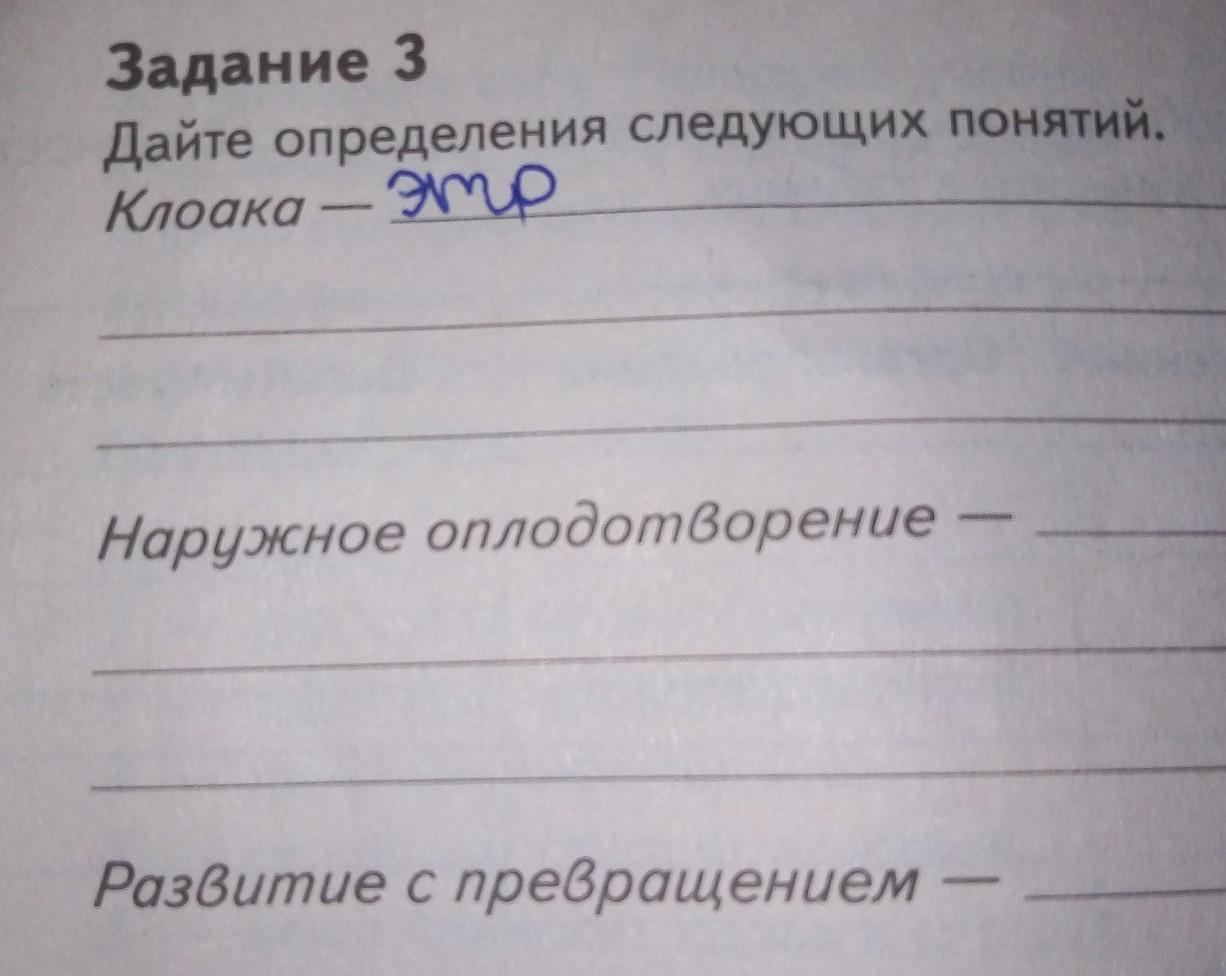 Задание 3
Дайте определения следующих понятий.
Клоака — этр
Наружное оплодотворение —
Развитие с превращением —